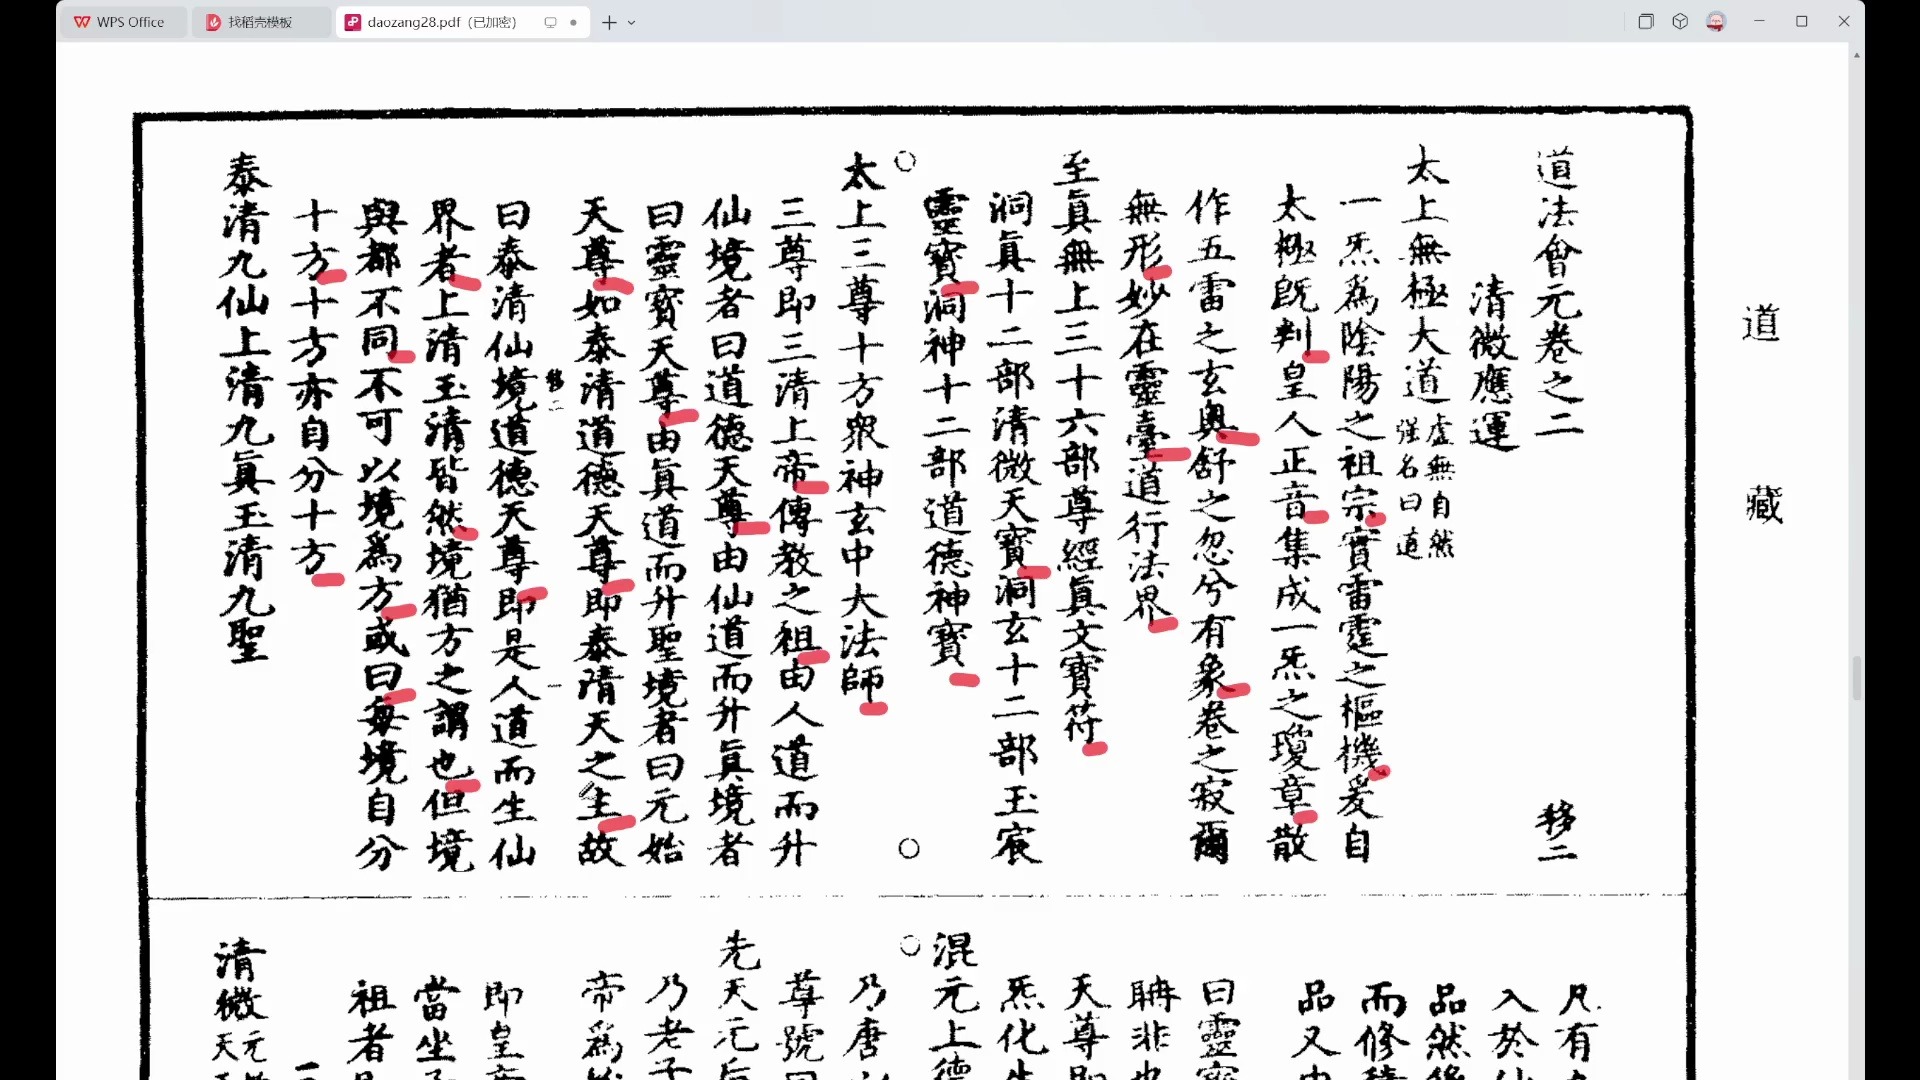 WPS Office
找稻壳模板
daozang28.pdf（已加密）
道 藏
道法會元卷之二 移二
清微應運
太上無極大道 虛無自然 强名曰道
一炁爲陰陽之祖宗實雷霆之樞機爰自
太極既判皇人正音集成一炁之瓊章散
作五雷之玄奥舒之忽兮有象卷之寂爾
無形妙在靈臺道行法界
至眞無上三十六部尊經眞文寶符
洞眞十二部清微天寶洞玄十二部玉宸
靈寶洞神十二部道德神寶
太上三尊十方衆神玄中大法師
三尊即三清上帝傳教之祖由人道而升
仙境者曰道德天尊由仙道而升眞境者
曰靈寶天尊由眞道而升聖境者曰元始
天尊如泰清道德天尊即泰清天之主故
曰泰清仙境道德天尊即是人道而生仙
界者上清玉清皆然境猶方之謂也但境
與都不同不可以境爲方或曰每境自分
十方十方亦自分十方
泰清九仙上清九眞玉清九聖
凡有
入於仙
品然後
而修
品又由
曰靈寶
聃非也
天尊即
炁化生
混元上德
乃唐
尊號曰
先天元后
乃老子
帝爲
即皇帝
當坐
祖者
清微元
天